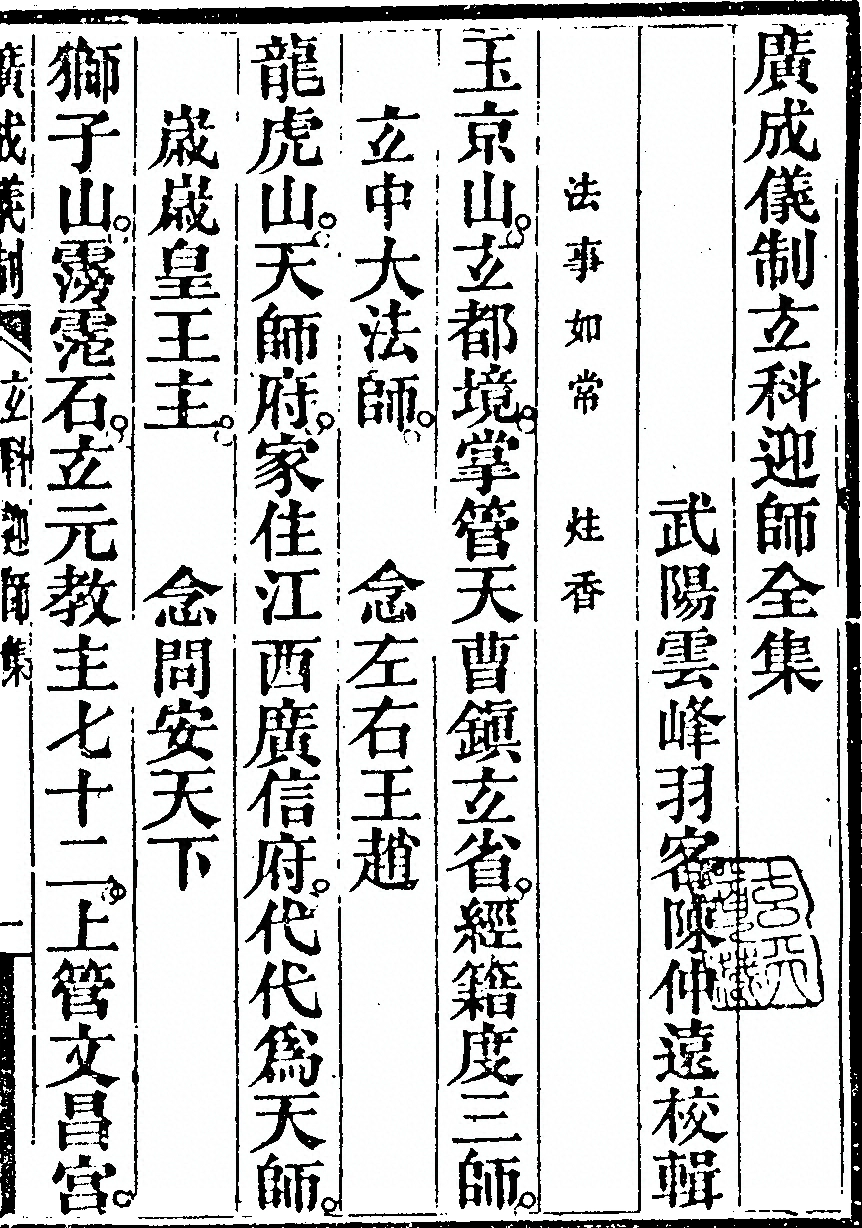 廣成儀制玄科迎師全集
武陽雲峰羽客陳仲遠校輯
法事如常　炷香
玉京山。玄都境。掌管天曹鎮玄省。經籍度三師。
玄中大法師。　念左右王趙
龍虎山。天師府。家住江西廣信府。代代爲天師。
歲歲皇王主。　念問安天下
獅子山。石。玄元教主七十二。上管文昌宮。
廣成儀制　玄科迎師集　一